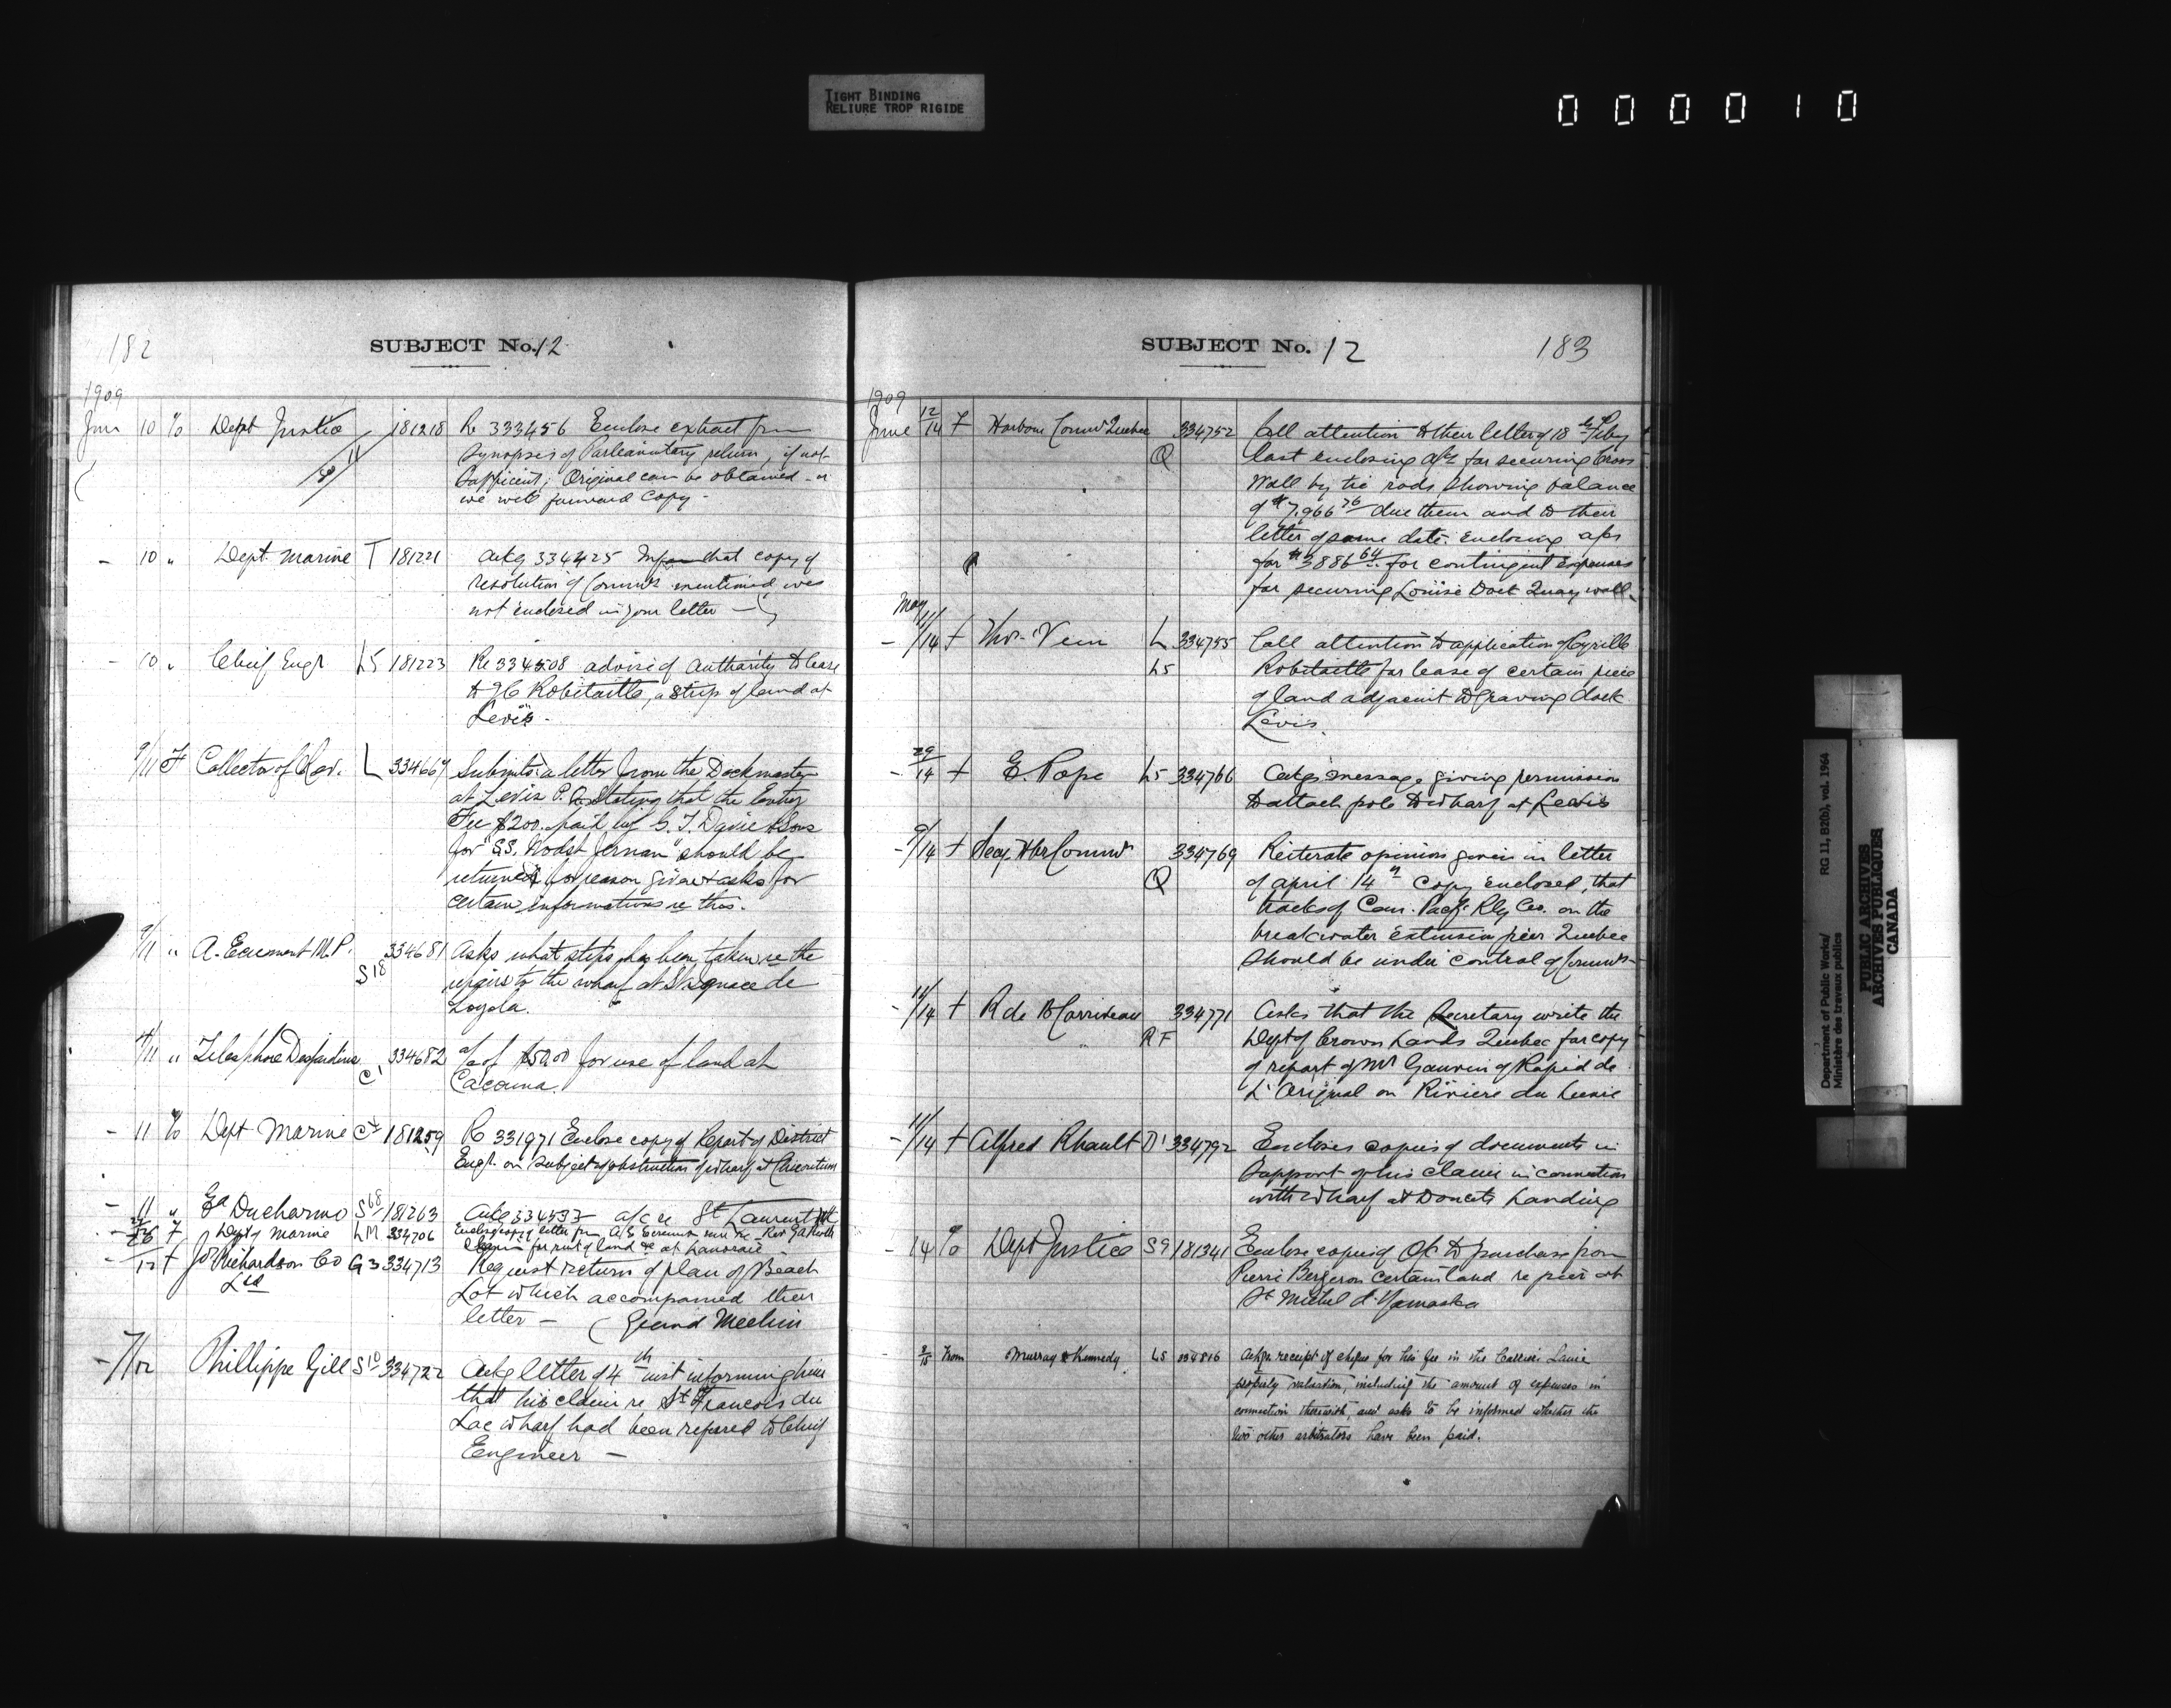 TIGHT BINDING
RELIURE TROP RIGIDE
000010
182
SUBJECT No. 12
1909
June 10 To Dept Justice 181218 Re 333456 Enclose extract from
Synopsis of Parliamentary return, if not
Sufficient; Original can be obtained - or
we will forward copy -
- 10 " Dept. Marine T 181221 Ackg 334425 Inform that copy of
resolution of Commrs mentioned was
not enclosed in your letter -
- 10 " Chief Engr L5 181223 Re 334508 advise of authority to lease
to Robitaille, a strip of land at
Levis -
9/11 F Collector of Rev. L 334669 Submits a letter from the Dockmaster
at Levis P.Q. Stating that the Entry
Fee $200. paid by G. T. Davie & Sons
for "S.S. should be
returned for reason given & asks for
certain informations re this.
9/11 " A. Ecrement M.P. S18 334681 Asks what steps has been taken re the
repairs to the wharf at St Ignace de
Loyola.
" Telesphore Desjardins C1 334682 a/c of $50.00 for use of land at
Cacouna.
- 11 To Dept Marine 181259 Re 331971 Enclose copy of Report of District
Engr. on Subject of obstruction of wharf at
- 11 " Ducharme S68 181263 Ackg 334533 a/c re St Laurent
F Depty Marine LM 334706 Enclose copy of letter from
claim for rent of land at Lanoraie
/12 F Richardson Co G3 334713 Request return of plan of Beach
Ltd Lot which accompanied their
letter - (Grand Mechin
- 7/12 Phillippe Gill S10 334722 Ackg letter of 4th inst informing him
that his claim re St Francois du
Lac wharf had been refered to Chief
Engineer -
SUBJECT No. 12
183
1909
June 12/14 F Harbour Commrs Quebec Q 334752 Call attention to their letter of 18th Feby
last enclosing a/c for securing Cross
Wall by tie rods, showing balance
of $7,966.76 due them and to their
letter of same date. enclosing a/cs
for $3886.64 for contingent expenses
for securing Louise Dock Quay wall.
May
- /14 F Thos. Vein L 334755 Call attention to application of Cyrille
L5 Robitaille for lease of certain piece
of land adjacent to graving dock
Levis.
- 29/14 F E. Pope L5 334766 Ackgs message giving permission
to attach pole to wharf at Levis
- 9/14 F Secy. Hbr Commrs Q 334769 Reiterate opinion given in letter
of april 14th copy enclosed, that
tracks of Can. Pacf. Rly Co. on the
breakwater extension pier Quebec
should be under control of Commrs -
- 11/14 F R de B Corriveau RF 334771 Asks that the Secretary write the
Dept of Crown Lands Quebec for copy
of report of Mr Gauvin of Rapid de
L'Original on Riviere du Lievre
- 11/14 F Alfred Rhault D1 334792 Encloses copies of documents in
Support of his claim in connection
with wharf at Doucets Landing
- 14 To Dept Justice S9 181341 Enclose copies of O/C to purchase from
Pierre Bergeron certain land re pier at
St Michel d'Yamaska
3/15 From Murray & Kennedy L5 334816 Ackgs. receipt of cheque for his fee in the Carrier Laine
property valuation, including the amount of expenses in
connection therewith, and asks to be informed whether the
two other arbitrators have been paid.
Department of Public Works/
Ministère des travaux publics
RG 11, B2(b), vol. 1964
PUBLIC ARCHIVES
ARCHIVES PUBLIQUES
CANADA